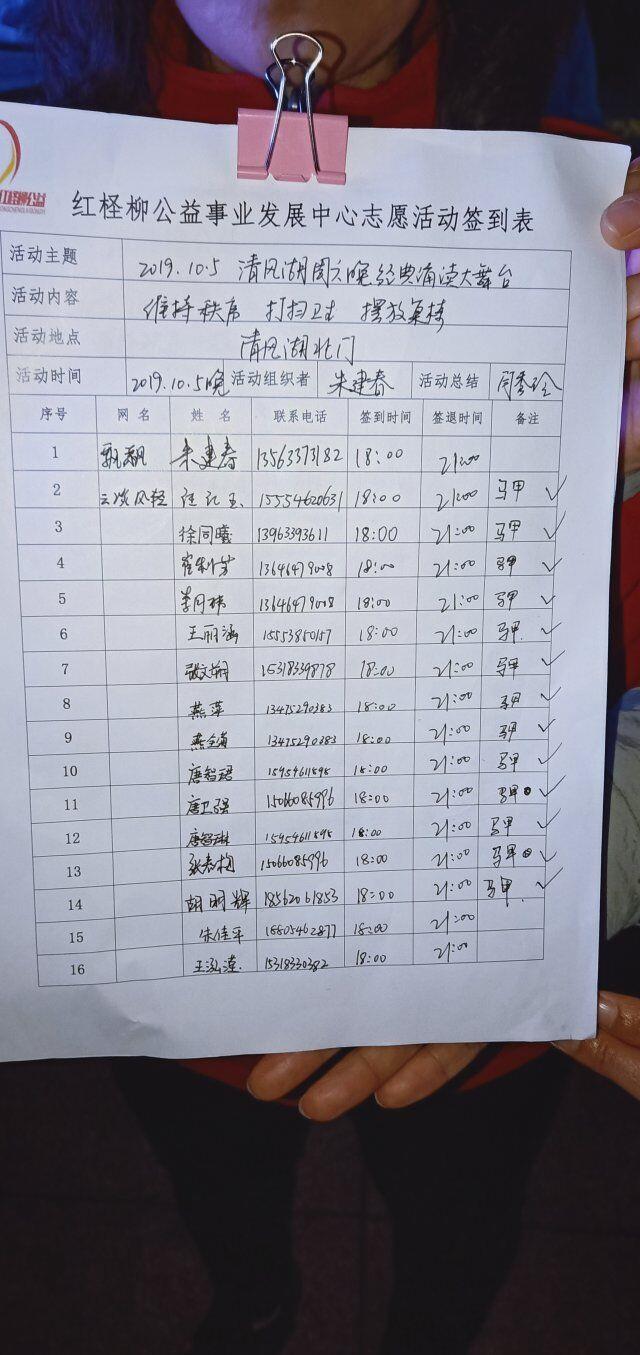 红柽柳公益
红柽柳公益事业发展中心志愿活动签到表
活动主题 2019.10.5 清风湖周六晚经典诵读大舞台
活动内容 维持秩序 打扫卫生 摆放桌椅
活动地点 清风湖北门
活动时间 2019.10.5晚 活动组织者 朱建春 活动总结 闫秀玲
序号 网名 姓名 联系电话 签到时间 签退时间 备注
1 飘飘 朱建春 13563373182 18:00 21:00
2 云淡风轻 15554620631 18:00 21:00 马甲 ✓
3 徐同曦 13963393611 18:00 21:00 马甲 ✓
4 崔利芳 13646479008 18:00 21:00 马甲 ✓
5 李同祎 13646479008 18:00 21:00 马甲 ✓
6 王丽涵 15553850157 18:00 21:00 马甲 ✓
7 张文娟 15318339878 18:00 21:00 马甲 ✓
8 燕萍 13475290383 18:00 21:00 马甲 ✓
9 13475290383 18:00 21:00 马甲 ✓
10 唐智珺 15954611898 18:00 21:00 马甲 ✓
11 唐卫强 15066085996 18:00 21:00 马甲 ✓
12 唐智琳 15954611898 18:00 21:00 马甲 ✓
13 张春梅 15066085996 18:00 21:00 马甲 ✓
14 胡明辉 18562061853 18:00 21:00 马甲 ✓
15 朱佳平 18805462877 18:00 21:00
16 王泓滢 15318330382 18:00 21:00